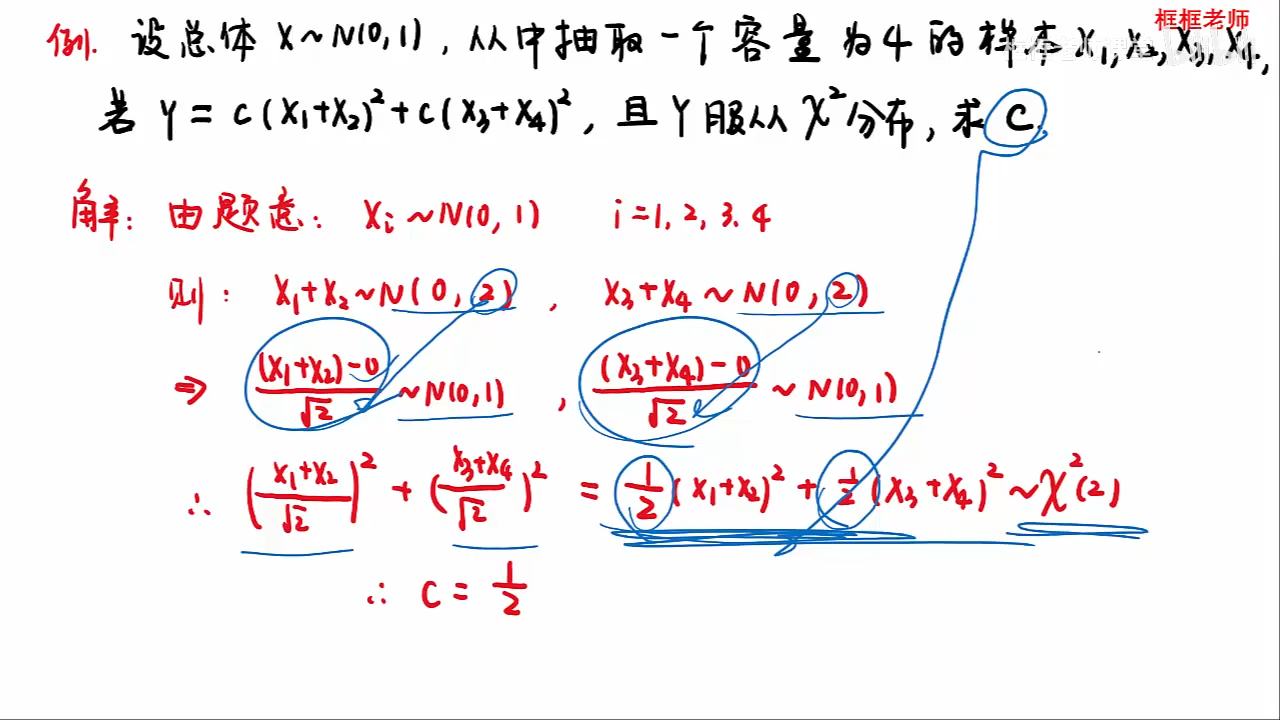 框框老师
例. 设总体 X~N(0,1), 从中抽取一个容量为4的样本 X₁,X₂,X₃,X₄,
若 Y = C(X₁+X₂)²+C(X₃+X₄)², 且Y服从 χ²分布, 求 C.
解: 由题意: Xᵢ~N(0,1) i=1,2,3.4
则: X₁+X₂~N(0,2), X₃+X₄~N(0,2)
⇒ (X₁+X₂)-0/√2 ~N(0,1), (X₃+X₄)-0/√2 ~N(0,1)
∴ (X₁+X₂/√2)² + (X₃+X₄/√2)² = 1/2(X₁+X₂)² + 1/2(X₃+X₄)² ~χ²(2)
∴ C = 1/2